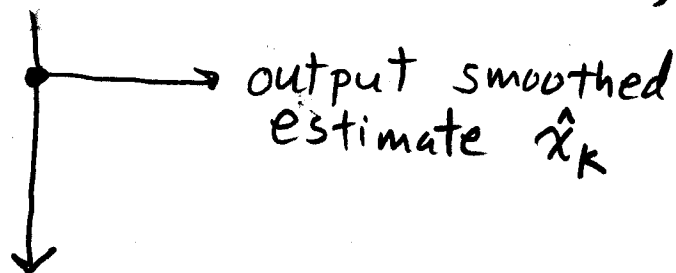 output smoothed
estimate x̂ₖ